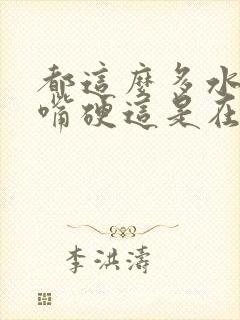 都這麼多水
嘴硬這是在
李洪濤